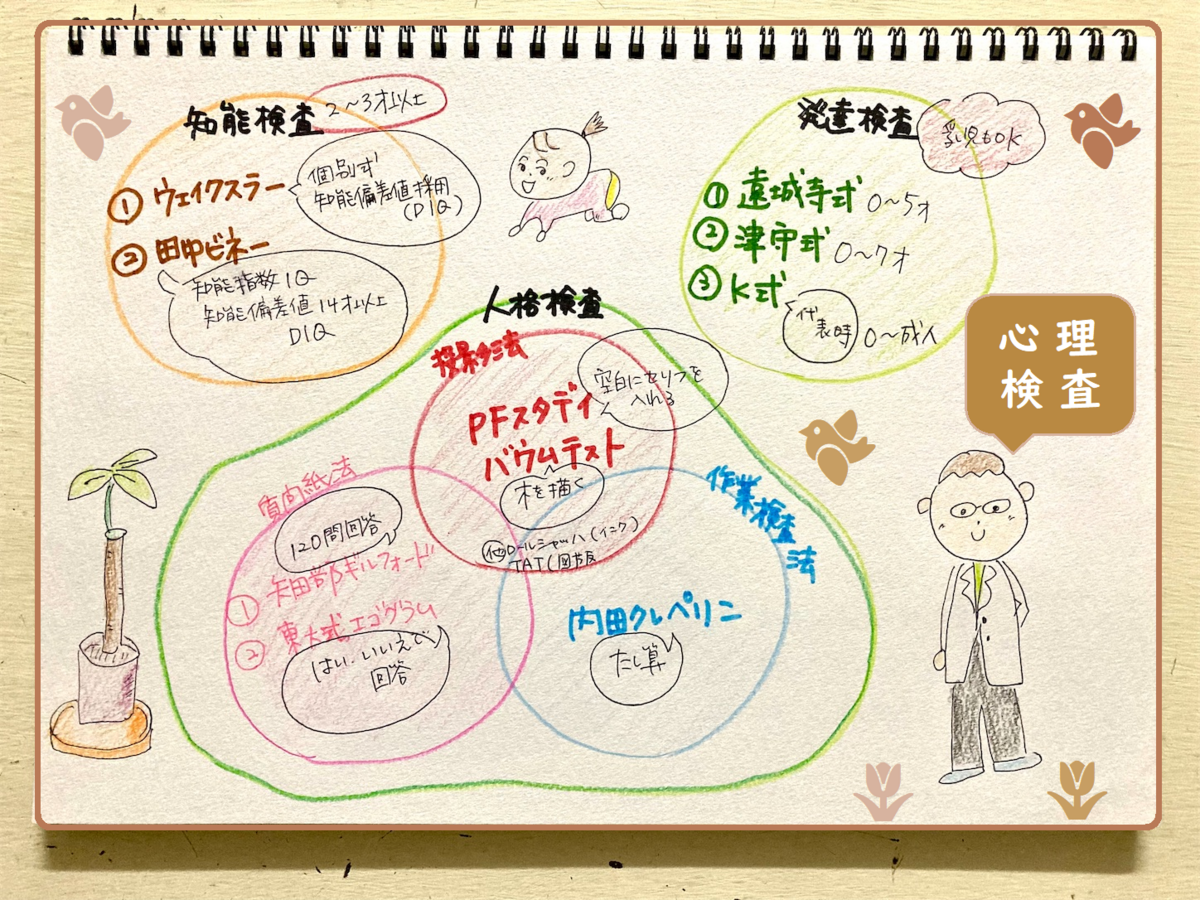 知能検査
2～3才以上
① ウェイクスラー
個別式
知能偏差値採用
(DIQ)
② 田中ビネー
知能指数IQ
知能偏差値14才以上
DIQ
発達検査
乳児もOK
① 遠城寺式 0～5才
② 津守式 0～7才
③ K式
代
表時
0～成人
心理
検査
人格検査
投影法
空白にセリフを
入れる
PFスタディ
バウムテスト
木を描く
他 ロールシャッハ(インク)
TAT(図版
質問紙法
120問回答
① 矢田部βギルフォード
② 東大式エゴグラム
はい、いいえで
回答
作業検査
法
内田クレペリン
たし算